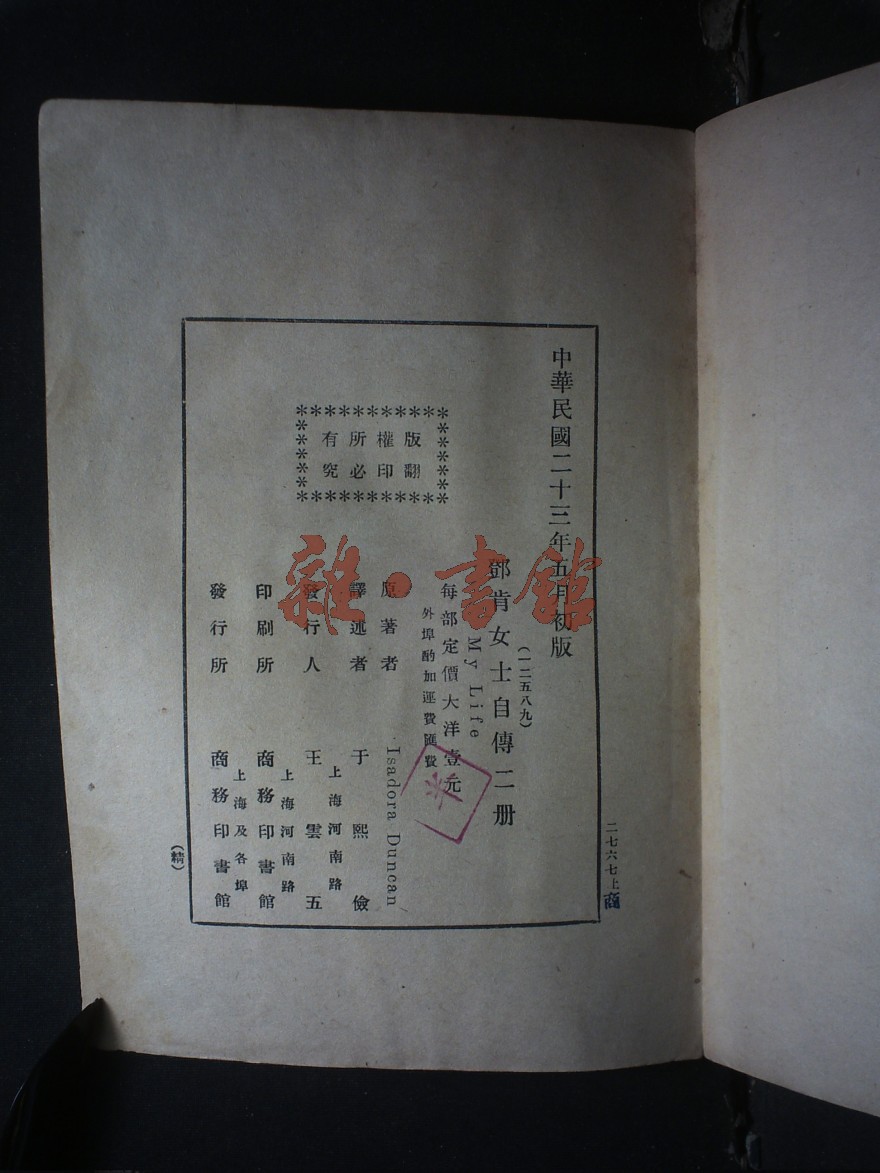 中華民國二十三年五月初版
(一二五八九)
鄧肯女士自傳二册
My Life
每部定價大洋壹元
外埠酌加運費匯費
版權所有
翻印必究
原著者 Isadora Duncan
譯述者 于熙儉
發行人 王雲五
上海河南路
印刷所 商務印書館
上海河南路
發行所 商務印書館
上海及各埠
(精)
二七六七上
商
雜·書館